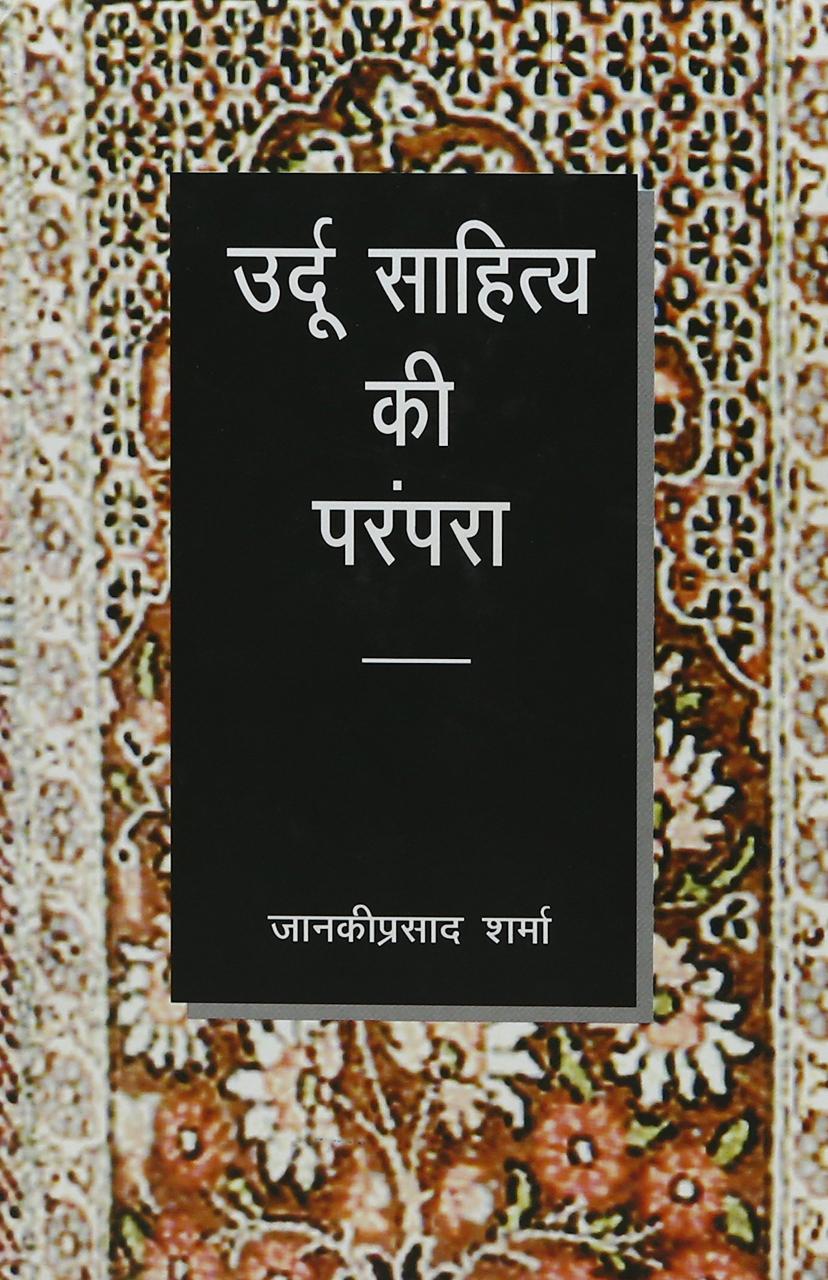 उर्दू साहित्य
की
परंपरा
जानकीप्रसाद शर्मा